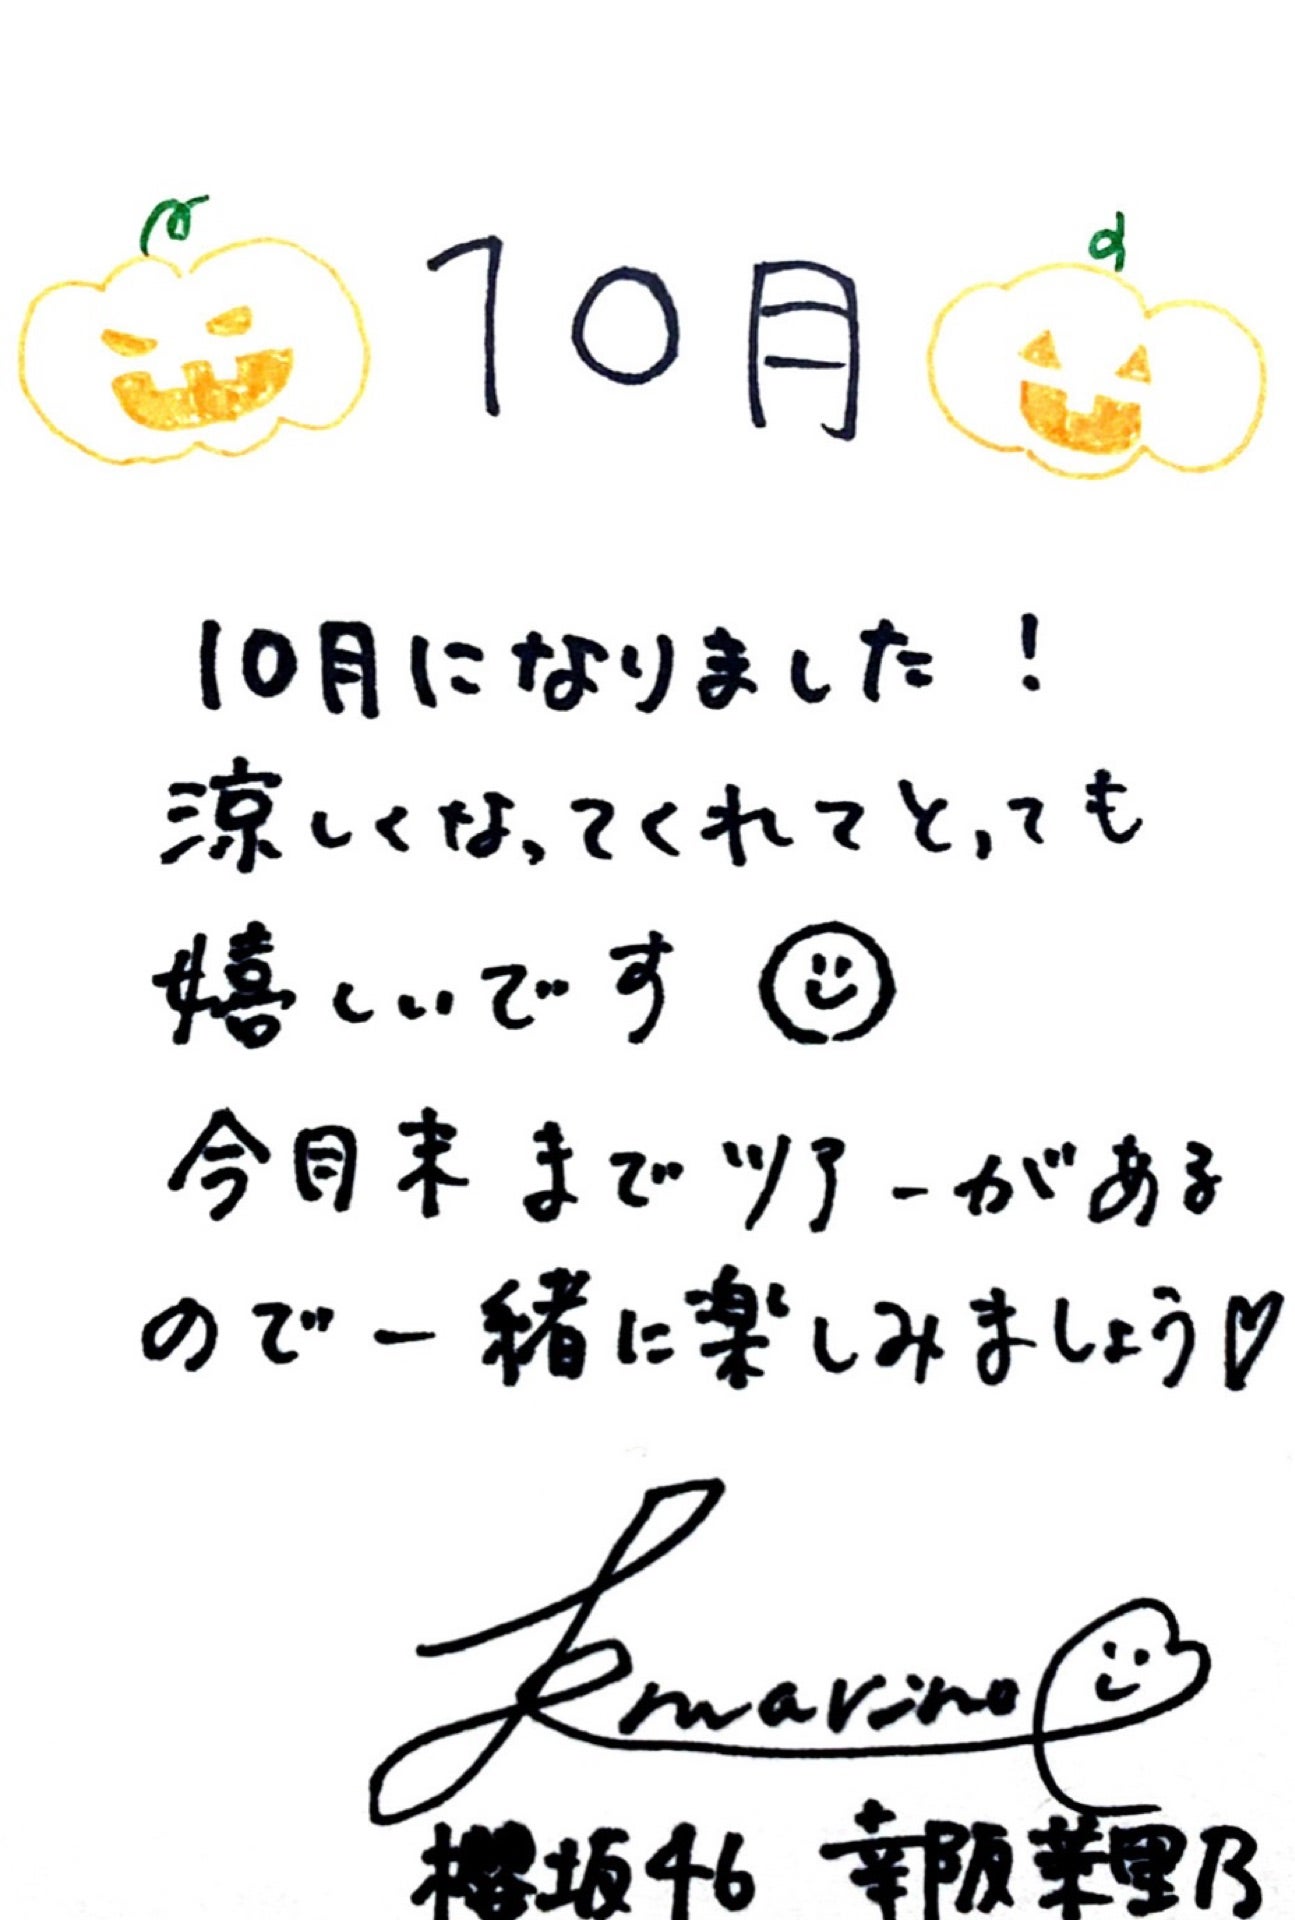 10月
10月になりました!
涼しくなってくれてとっても
嬉しいです
今月末までツアーがある
ので一緒に楽しみましょう♡
marino
櫻坂46 幸阪茉里乃